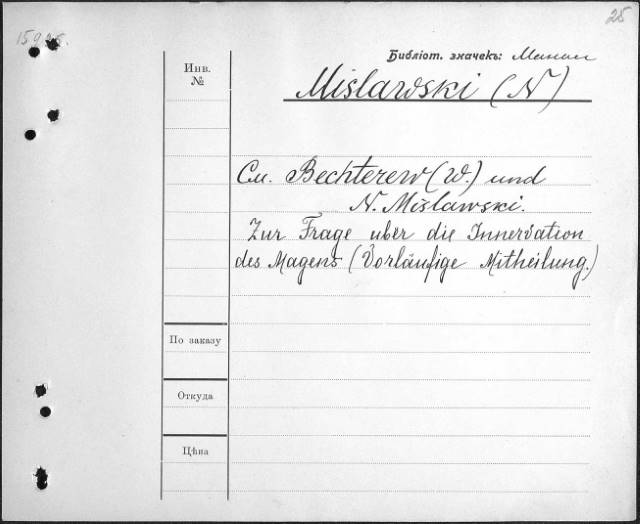 25
Библіот. значекъ:
Инв.
№
Mislawski (N)
См. Bechterew (W.) und
N. Mislawski.
Zur Frage uber die Innervation
des Magens (Vorläufige Mittheilung.)
По заказу
Откуда
Цѣна